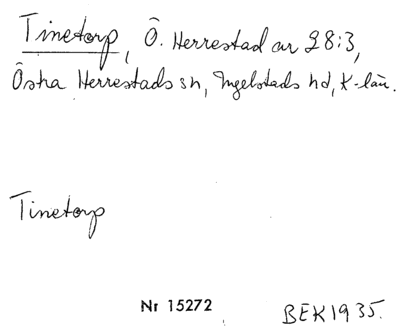 Tinetorp, Ö. Herrestad ar 28:3,
Östra Herrestads sn, Ingelstads hd, K-län.
Tinetorp
Nr 15272
BEK 1935.